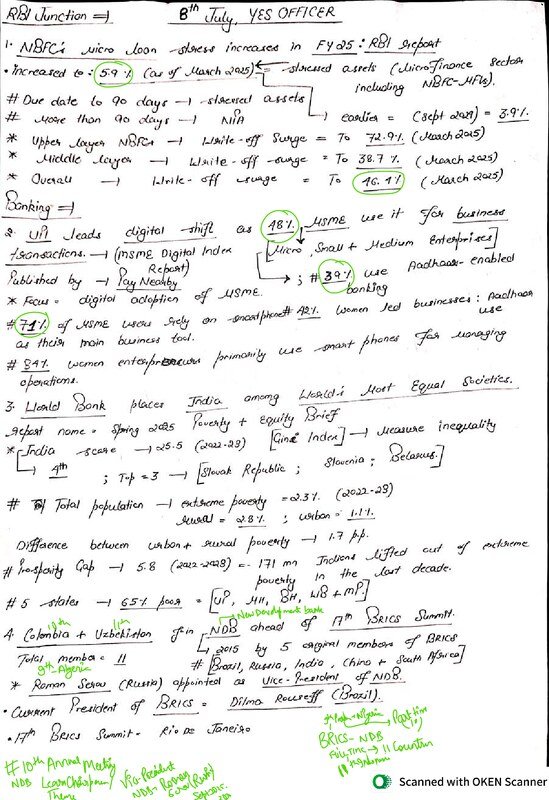 RBI Junction ⇒ 8th July, YES OFFICER
1. NBFC's micro loan stress increases in FY25 : RBI report
• increased to : 5.9% (as of March 2025) ← stressed assets (Microfinance sector including NBFC-MFIs).
# Due date to 90 days → stressed assets
→ earlier = (Sept 2024) = 3.9%.
# More than 90 days → NPA
* Upper layer NBFCs → Write-off Surge = To 72.9% (March 2025)
* Middle layer → Write-off surge = To 38.7% (March 2025)
* Overall → Write-off surge = To 46.4% (March 2025)
Banking ⇒
2. UPI leads digital shift as 48% MSME use it for business
transactions. → (MSME Digital Index Report) [Micro, Small + Medium Enterprises]
Published by → PayNearby ; # 39% use Aadhaar-enabled banking
* Focus = digital adoption of MSME.
# 71% of MSME users rely on smartphone # 42% women led businesses : Aadhaar use
as their main business tool.
# 84% women entrepreneurs primarily use smart phones for managing
operations.
3. World Bank places India among World's Most Equal Societies.
report name = Spring 2025 Poverty + Equity Brief
* India score → 25.5 (2022-23) [Gini Index] → measure inequality
→ 4th ; Top = 3 → [Slovak Republic ; Slovenia ; Belarus.]
# Total population → extreme poverty = 2.3% (2022-23)
rural = 2.8% ; urban = 1.1%
Difference between urban + rural poverty → 1.7 pp.
# Prosperity Gap → 5.8 (2022-2023) = 171 mn Indians lifted out of extreme
poverty in the last decade.
# 5 states → 65% poor = [UP, MH, BH, WB + MP.]
New Development bank
4. Colombia + Uzbekistan join NDB ahead of 17th BRICS Summit.
Total member = 11 → 2015 by 5 original members of BRICS
9th - Algeria # [Brazil, Russia, India, China + South Africa]
* Roman Serov (Russia) appointed as Vice-President of NDB.
• Current President of BRICS = Dilma Rousseff (Brazil).
• 17th BRICS Summit - Rio De Janeiro
BRICS - NDB
11 Countries
# 10th Annual Meeting
NDB
Theme
Vice-President
NDB - Roman
Scanned with OKEN Scanner